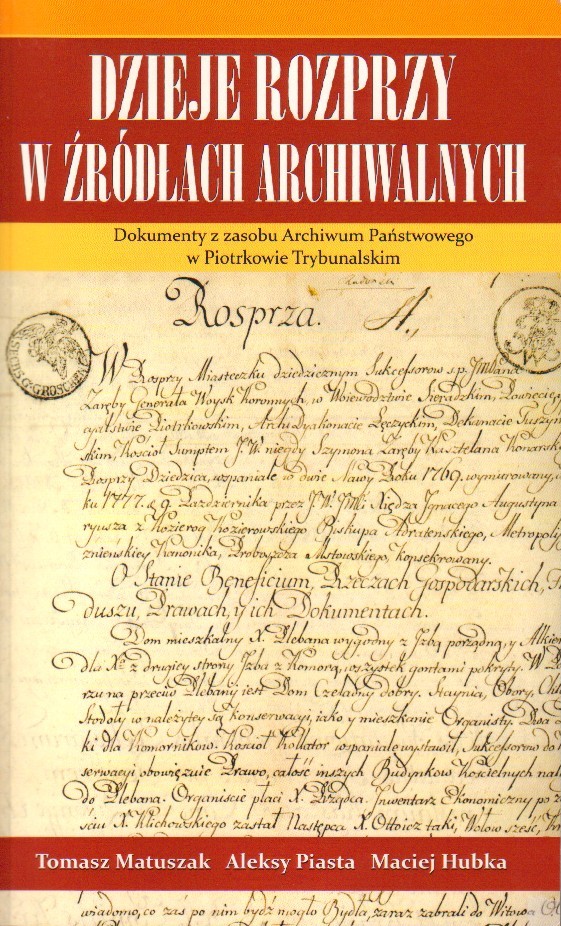 DZIEJE ROZPRZY
W ŹRÓDŁACH ARCHIWALNYCH
Dokumenty z zasobu Archiwum Państwowego
w Piotrkowie Trybunalskim
Rosprza.
W Rosprzy Miasteczku dziedzicznym Sukcessorow s.p. JWPana
Zaręby Generała Woysk Koronnych, w Woiewodztwie Sieradzkim, Powiecie,
cyalstwie Piotrkowskim, Archidyakonacie Łęczyckim, Dekanacie Tuszyń
skim, Kościoł Sumptem J.W. niegdy Szymona Zaręby Kasztelana Konarsk
Rosprzy Dziedzica, wspaniale w dwie Nawy Roku 1769. wymurowany,
ku 1777. 9. Października przez J.W. JMci Xiędza Ignacego Augustyna
ryusza z Kozierog Kozierowskiego Biskupa Adrateńskiego, Metropoli
znieńskiey Kanonika, Proboszcza Mstowskiego, konsekrowany.
O Stanie Beneficium, Rzeczach Gospodarskich, Fu
duszu, Prawach, y ich Dokumentach.
Dom mieszkalny X. Plebana wygodny z Izbą porządną, y Alkier
dla Xa z drugiey strony Izba z Komorą, wszystek gontami pokryty. W P
rzu na przeciw Plebanij iest Dom Czeladny dobry. Staynia, Obory, Chl
Stodoły w należytey są konserwacyi, iako y mieszkanie Organisty. Dwa
ki dla Komornikow. Kościoł Kollator wspaniale wystawił, Sukcessorow do
serwacyi obowięzuie Prawo, całość inszych Budynkow Kościelnych nal
do Plebana. Organiście płaci X. Rządca. Inwentarz Ekonomiczny po ze
ściu X. Klichowskiego zastał Następca X. Ottoicz taki, Wołow sześć,
Tomasz Matuszak Aleksy Piasta Maciej Hubka
wiadomo, co zaś po nim bydź mogło Bydła, zaraz zabrali do Witowa